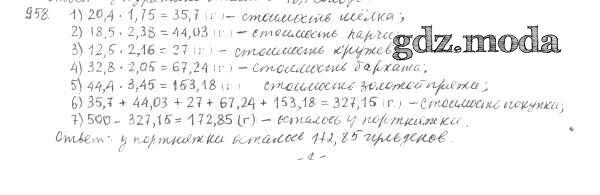 958. 1) 20,4 · 1,75 = 35,7 (г) – стоимость шёлка;
2) 18,5 · 2,38 = 44,03 (г) – стоимость парчи
3) 12,5 · 2,16 = 27 (г) – стоимость кружев
gdz.moda
4) 32,8 · 2,05 = 67,24 (г) – стоимость бархата;
5) 44,4 · 3,45 = 153,18 (г) стоимость золотой пряжи;
6) 35,7 + 44,03 + 27 + 67,24 + 153,18 = 327,15 (г.) – стоимость покупки;
7) 500 – 327,15 = 172,85 (г) – осталось у портняжки.
Ответ: у портняжки осталось 172,85 гульденов.